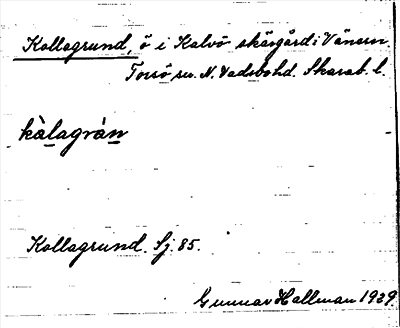 Kollagrund, ö i Kalvö skärgård i Vänern.
Torsö sn. N. Vadsbohd. Skarab. l.
kàlagràn
Kollagrund. Sj. 85.
Gunnar Hallman 1929.